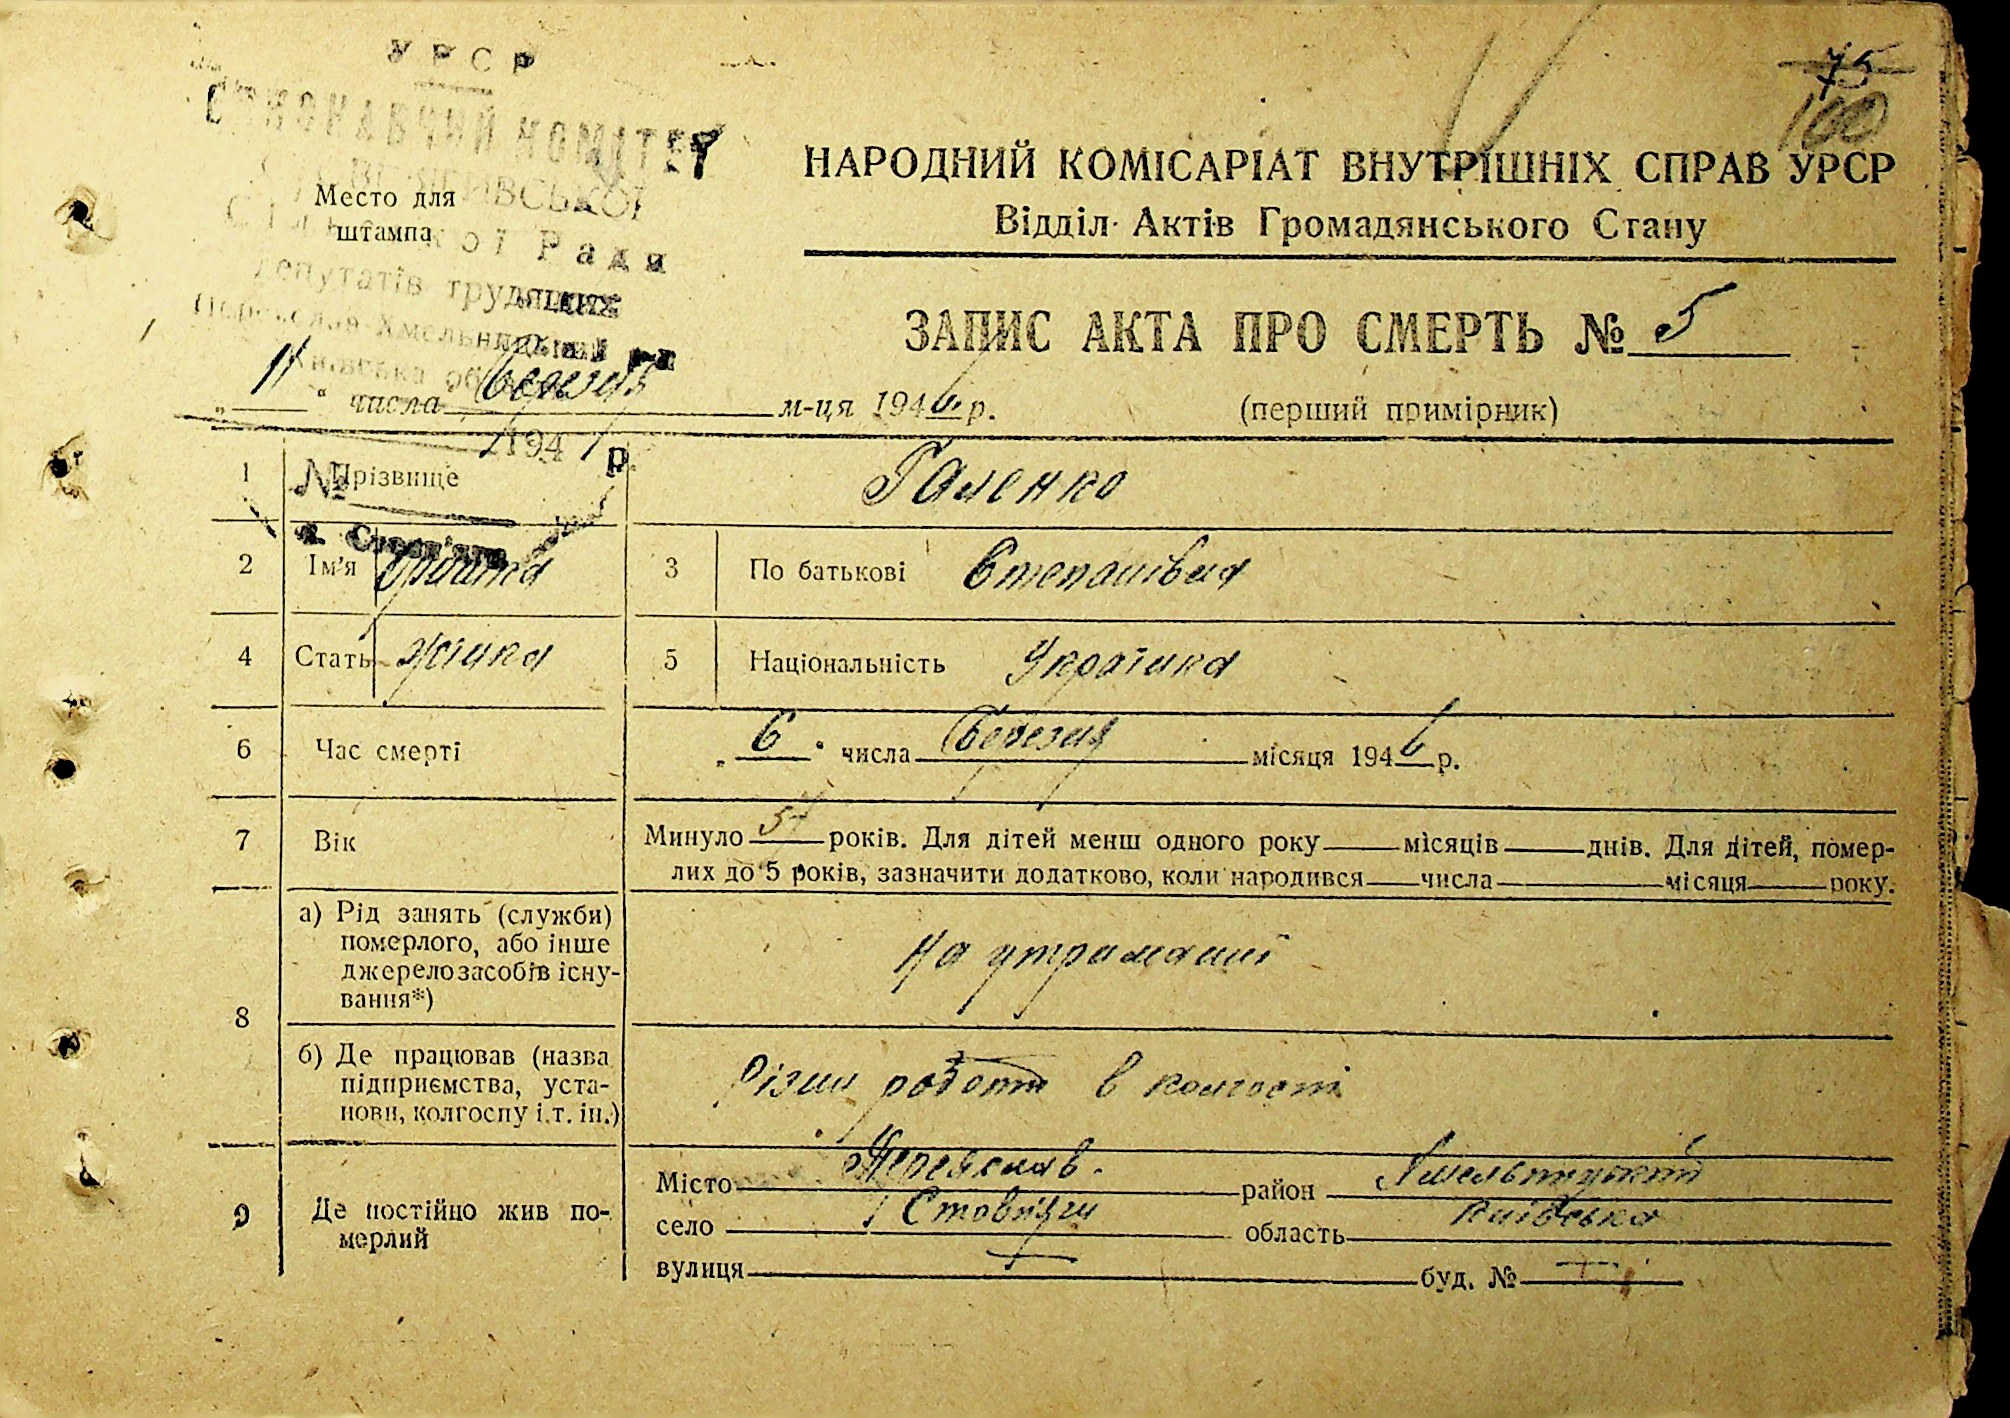 75
100
УРСР
ВИКОНАВЧИЙ КОМІТЕТ
Сільської Ради
депутатів трудящих
Переяслав-Хмельницький р-н
Київська обл.
194 р.
№
Место для
штампа
НАРОДНИЙ КОМІСАРІАТ ВНУТРІШНІХ СПРАВ УРСР
Відділ Актів Громадянського Стану
ЗАПИС АКТА ПРО СМЕРТЬ № 5
„11“ числа березня м-ця 1946 р. (перший примірник)
1 Прізвище Галенко
2 Ім'я 3 По батькові Степанівна
4 Стать жінка 5 Національність Українка
6 Час смерті „6“ числа березня місяця 1946 р.
7 Вік Минуло років. Для дітей менш одного року місяців днів. Для дітей, помер-
лих до 5 років, зазначити додатково, коли народився числа місяця року.
8 а) Рід занять (служби)
померлого, або інше
джерело засобів існу-
вання*)
на утриманні
б) Де працював (назва
підприємства, уста-
нови, колгоспу і т. ін.)
Різни роботи в колгоспі
9 Де постійно жив по-
мерлий
Місто Переяслав район Хмельницький
село Стовпяги область Київська
вулиця — буд. № —